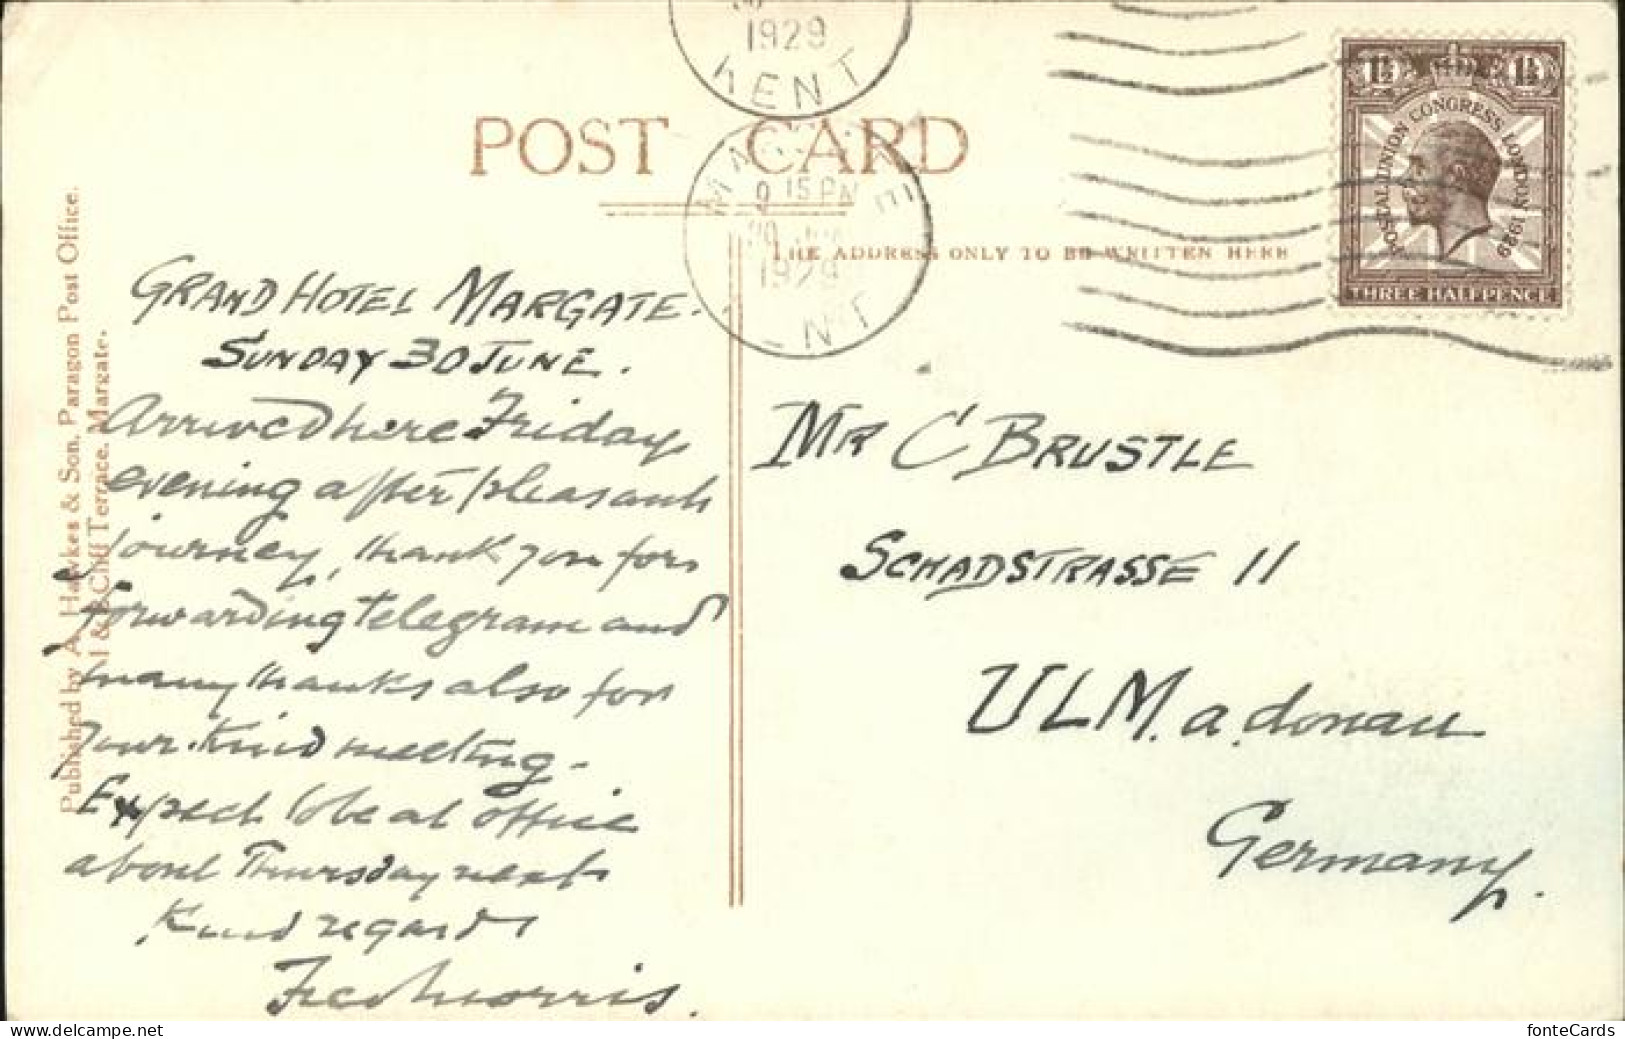 1929
KENT
POST CARD
MARGATE
9 15 PM
1929
THE ADDRESS ONLY TO BE WRITTEN HERE
1½ 1½
POSTAL UNION CONGRESS LONDON 1929
THREE HALFPENCE
Published by A. Hawkes & Son, Paragon Post Office,
Cliff Terrace, Margate.
GRAND HOTEL MARGATE.
SUNDAY 30 JUNE.
Arrived here Friday
evening after pleasant
journey, thank you for
forwarding telegram and
many thanks also for
your kind meeting -
Expect to be at office
about Thursday next
Kind regards
Morris.
MR C BRUSTLE
SCHADSTRASSE 11
ULM. a. donau
Germany.
fonteCards